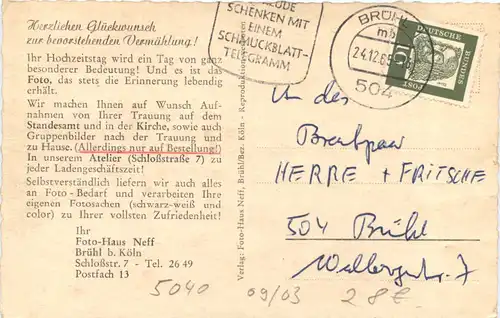 Herzlichen Glückwunsch
zur bevorstehenden Vermählung!
Ihr Hochzeitstag wird ein Tag von ganz
besonderer Bedeutung! Und es ist das
Foto, das stets die Erinnerung lebendig
erhält.
Wir machen Ihnen auf Wunsch Auf-
nahmen von Ihrer Trauung auf dem
Standesamt und in der Kirche, sowie auch
Gruppenbilder nach der Trauung und
zu Hause. (Allerdings nur auf Bestellung!)
In unserem Atelier (Schloßstraße 7) zu
jeder Ladengeschäftszeit!
Selbstverständlich liefern wir auch alles
an Foto-Bedarf und verarbeiten Ihre
eigenen Fotosachen (schwarz-weiß und
color) zu Ihrer vollsten Zufriedenheit!
Ihr
Foto-Haus Neff
Brühl b. Köln
Schloßstr. 7 - Tel. 26 49
Postfach 13
Verlag: Foto-Haus Neff, Brühl/Bez. Köln - Reproduktion
SCHENKEN MIT
EINEM
SCHMUCKBLATT-
TELEGRAMM
BRÜHL
mb
24.12.65
504
DEUTSCHE
BUNDES
POST
10
An das
Brautpaar
HERRE + FRITSCHE
504 Brühl
5040
09/03
28€